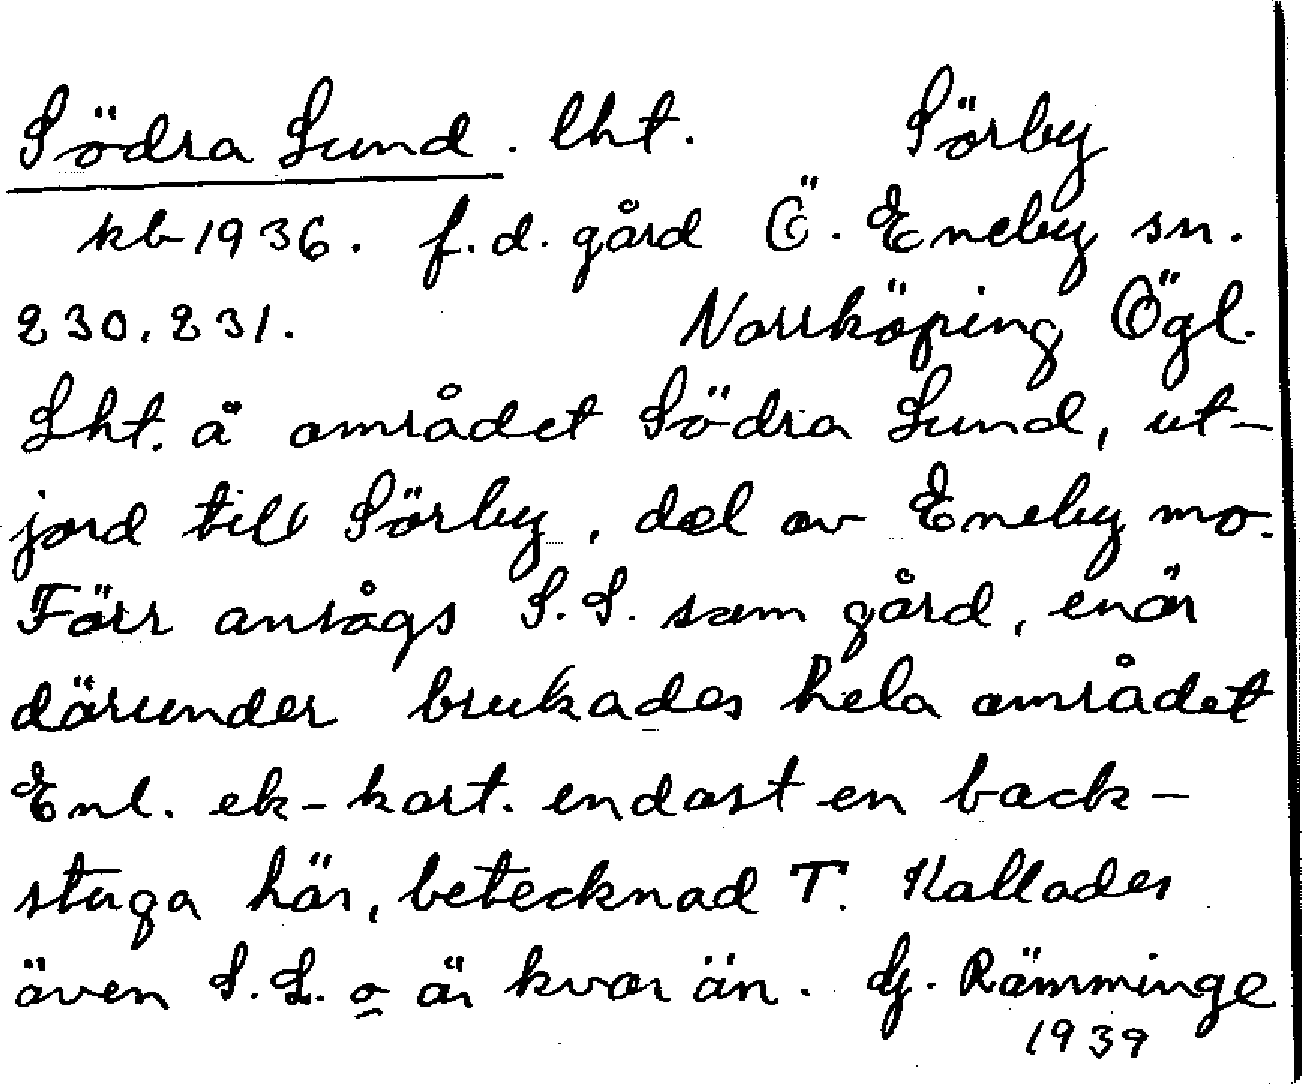 Södra Sund. lht. Sörby
kb 1936. f.d. gård Ö. Eneby sn.
230, 231. Norrköping Ögl.
Lht. å området Södra Sund, ut-
jord till Sörby, del av Eneby mo.
Förr ansågs S.S. som gård, enär
därunder brukades hela området
Enl. ek-kart. endast en back-
stuga här, betecknad T. Kallades
även S.L. o är kvar än. G. Rämminge
1939